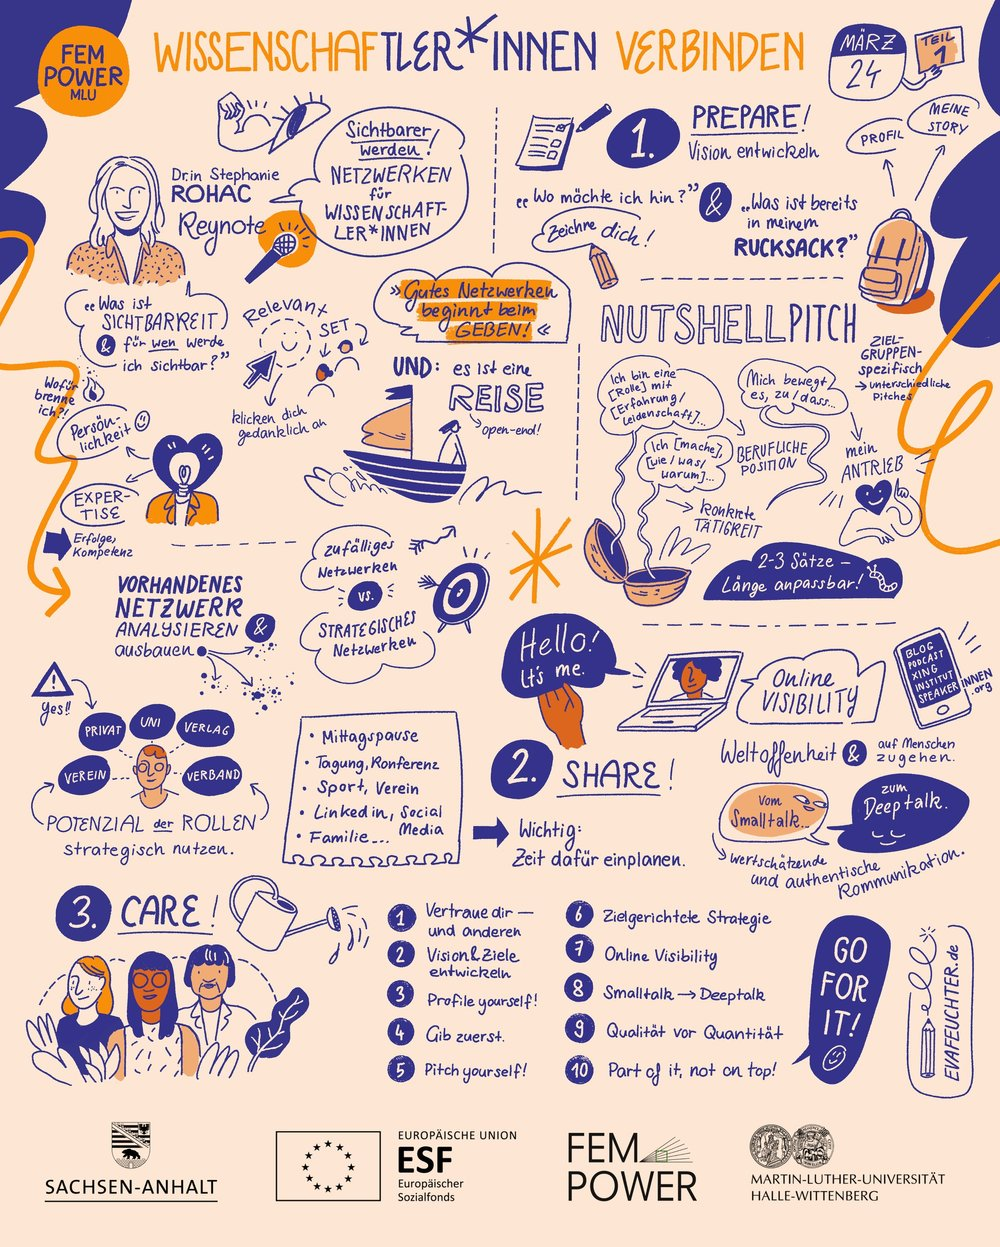 FEM
POWER
MLU
WISSENSCHAFTLER*INNEN VERBINDEN
MÄRZ
24
TEIL
1
Dr.in Stephanie
ROHAC
Keynote
Sichtbarer
werden!
NETZWERKEN
für
WISSENSCHAFT-
LER*INNEN
1. PREPARE!
Vision entwickeln
PROFIL
MEINE
STORY
„Wo möchte ich hin?"
Zeichne dich!
&
„Was ist bereits
in meinem
RUCKSACK?"
„Was ist
SICHTBARKEIT
& für wen werde
ich sichtbar?"
Relevant
SET
klicken dich
gedanklich an
»Gutes Netzwerken
beginnt beim
GEBEN!«
UND: es ist eine
REISE
open-end!
Wofür
brenne
ich?!
Persön-
lichkeit
EXPER-
TISE
Erfolge,
Kompetenz
NUTSHELLPITCH
ZIEL-
GRUPPEN-
spezifisch
→ unterschiedliche
Pitches
Ich bin eine
[Rolle] mit
[Erfahrung/
Leidenschaft]...
BERUFLICHE
POSITION
Ich [mache],
[wie/was/
warum]...
konkrete
TÄTIGKEIT
Mich bewegt
es, zu/dass...
mein
ANTRIEB
2-3 Sätze –
Länge anpassbar!
VORHANDENES
NETZWERK
ANALYSIEREN &
ausbauen
zufälliges
Netzwerken
vs.
STRATEGISCHES
Netzwerken
Yes!!
PRIVAT
UNI
VERLAG
VEREIN
VERBAND
POTENZIAL der ROLLEN
strategisch nutzen.
• Mittagspause
• Tagung, Konferenz
• Sport, Verein
• Linkedin, Social
Media
• Familie...
Hello!
It's me.
2. SHARE!
Wichtig:
Zeit dafür einplanen.
Online
VISIBILITY
BLOG
PODCAST
XING
INSTITUT
SPEAKERINNEN
.org
Weltoffenheit & auf Menschen
zugehen.
vom
Smalltalk...
zum
Deeptalk.
wertschätzende
und authentische
Kommunikation.
3. CARE!
1 Vertraue dir –
und anderen
2 Vision & Ziele
entwickeln
3 Profile yourself!
4 Gib zuerst.
5 Pitch yourself!
6 Zielgerichtete Strategie
7 Online Visibility
8 Smalltalk → Deeptalk
9 Qualität vor Quantität
10 Part of it, not on top!
GO
FOR
IT!
EVAFEUCHTER.de
SACHSEN-ANHALT
EUROPÄISCHE UNION
ESF
Europäischer
Sozialfonds
FEM
POWER
MARTIN-LUTHER-UNIVERSITÄT
HALLE-WITTENBERG